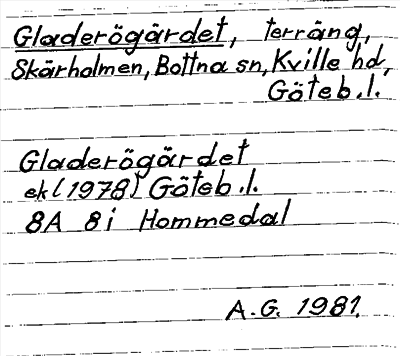 Gladerögärdet, terräng,
Skärholmen, Bottna sn, Kville hd,
Göteb.l.
Gladerögärdet
ek (1978) Göteb.l.
8A 8i Hommedal
A.G. 1981.